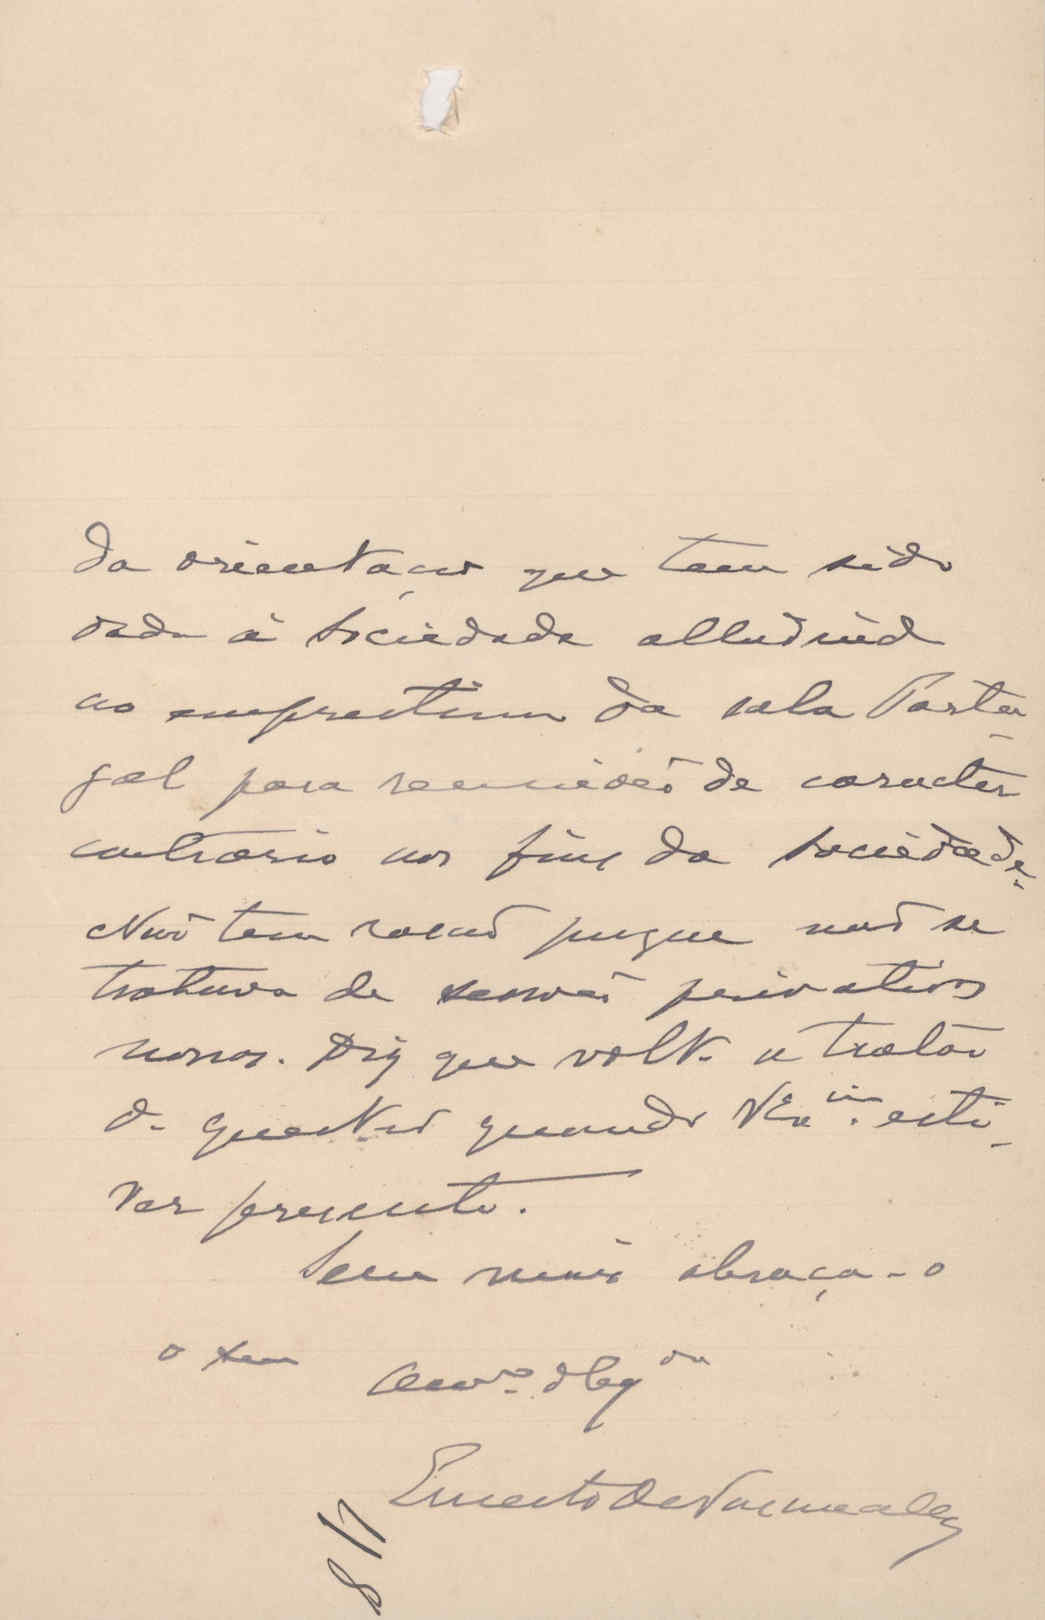 da orientação que tem sido
dada á Sociedade alludind
ao emprestimo da sala Portu-
gal para reuniões de caracter
contrario aos fins da Sociedade.
Não tem rasão porque não se
tratava de sessões privativas
nossas. Diz que volta a tratar
da questão quando V Ex.cia esti-
ver presente.
Sem mais abraça-o
o seu
Am.º Obg.do
Ernesto de Vasconcellos
8/7